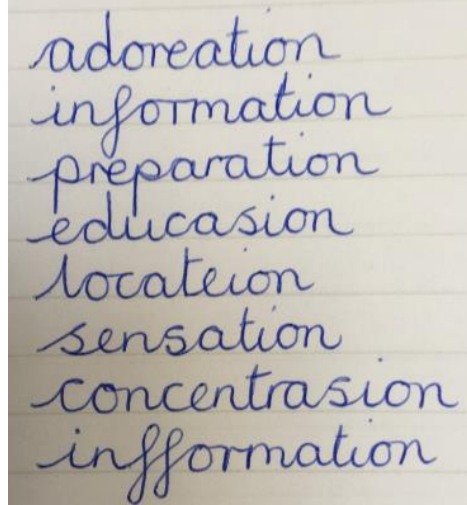 adoreation
information
preparation
educasion
locateion
sensation
concentrasion
infformation